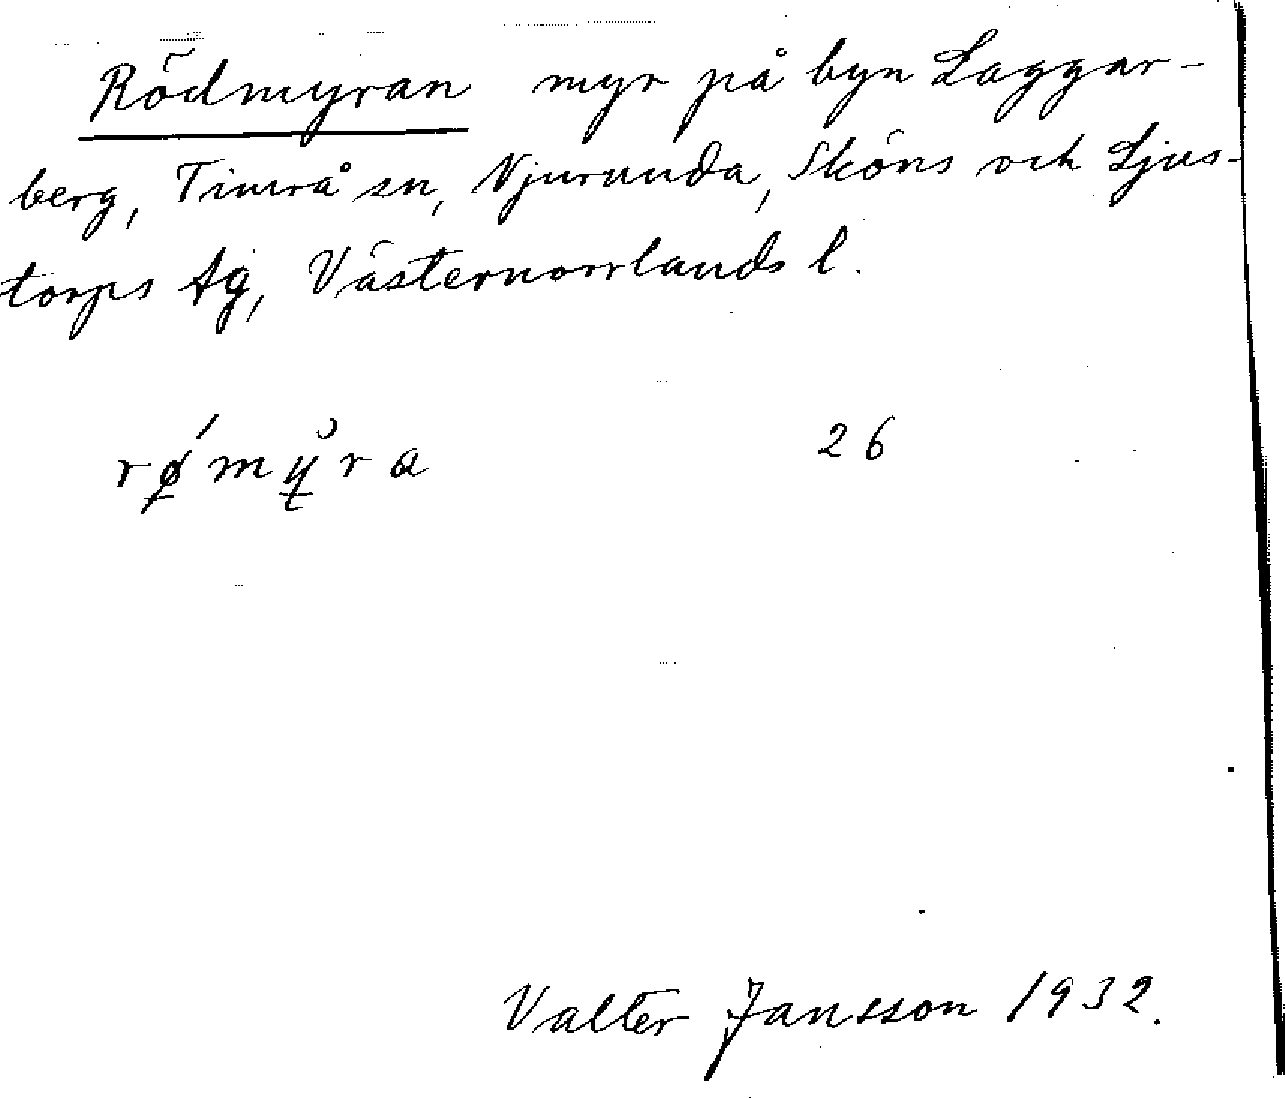 Rödmyran myr på byn Laggar-
berg, Timrå sn, Njurunda, Sköns och Ljus-
torps tg, Västernorrlands l.
rǿ̲my̲̆ra 26
Valter Jansson 1932.